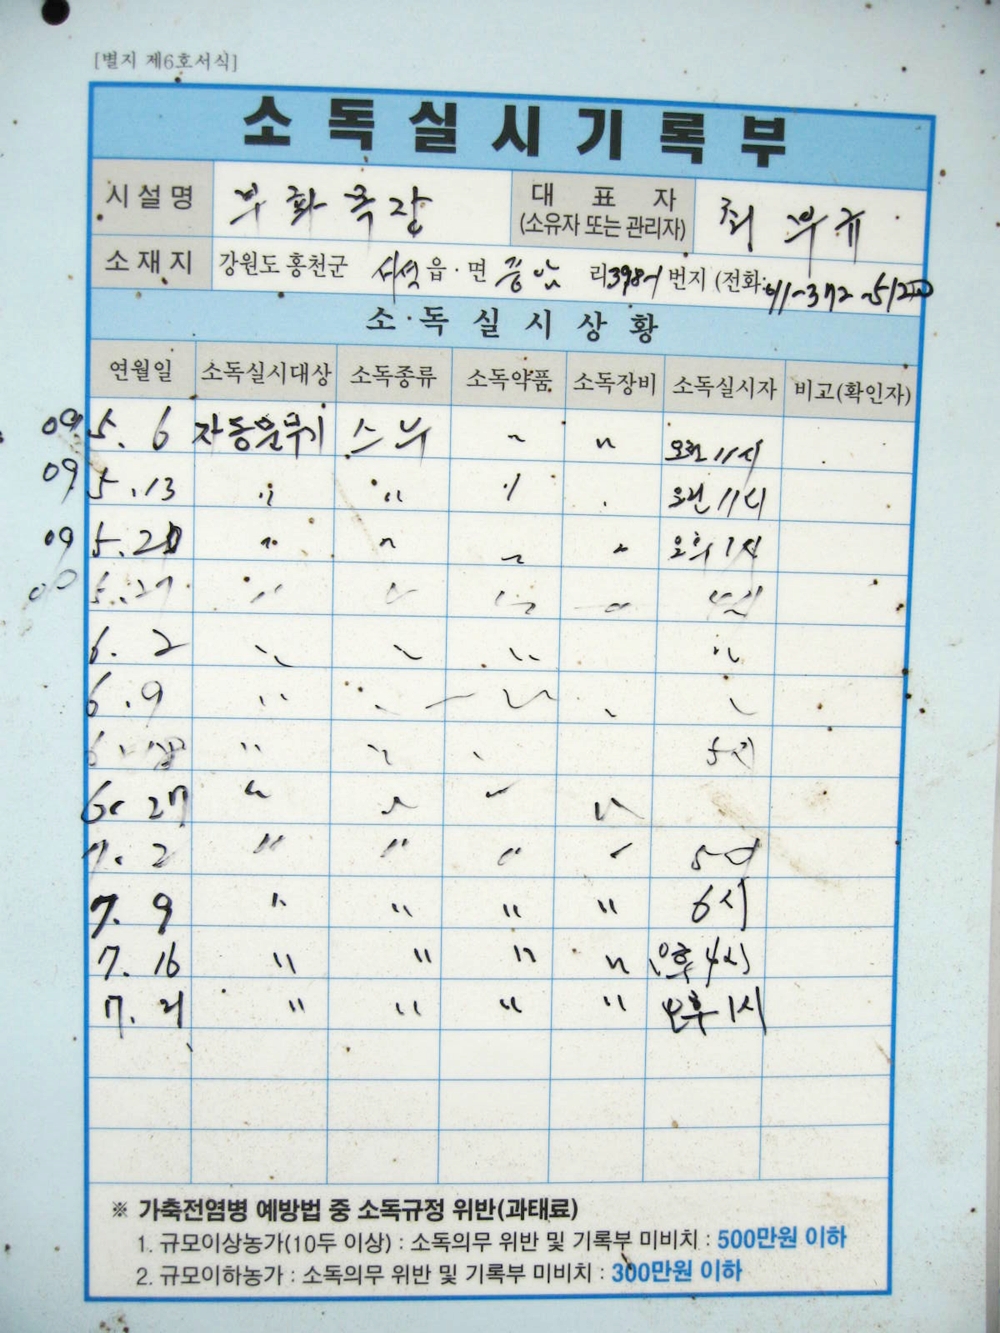 [별지 제6호서식]
소독실시기록부
시설명 부화목장 대표자 (소유자 또는 관리자) 최부규
소재지 강원도 홍천군 서석 읍·면 풍암 리 398-1 번지 (전화: 011-372-
소·독실시상황
연월일 소독실시대상 소독종류 소독약품 소독장비 소독실시자 비고(확인자)
09. 5. 6 자동분무기 〃 〃 오전 11시
09 5. 13 〃 〃 오전 11시
09 5. 20 〃 〃 〃 오후 1시
5. 27 〃 〃 〃 〃 4시
6. 2 〃 〃 〃 〃
6. 9 〃
〃 〃 5시
6. 27 〃 〃 〃 〃
7. 2 〃 〃 〃 〃 5시
7. 9 〃 〃 〃 〃 6시
7. 16 〃 〃 〃 〃 오후 4시
7. 21 〃 〃 〃 〃 오후 1시
※ 가축전염병 예방법 중 소독규정 위반(과태료)
1. 규모이상농가(10두 이상) : 소독의무 위반 및 기록부 미비치 : 500만원 이하
2. 규모이하농가 : 소독의무 위반 및 기록부 미비치 : 300만원 이하